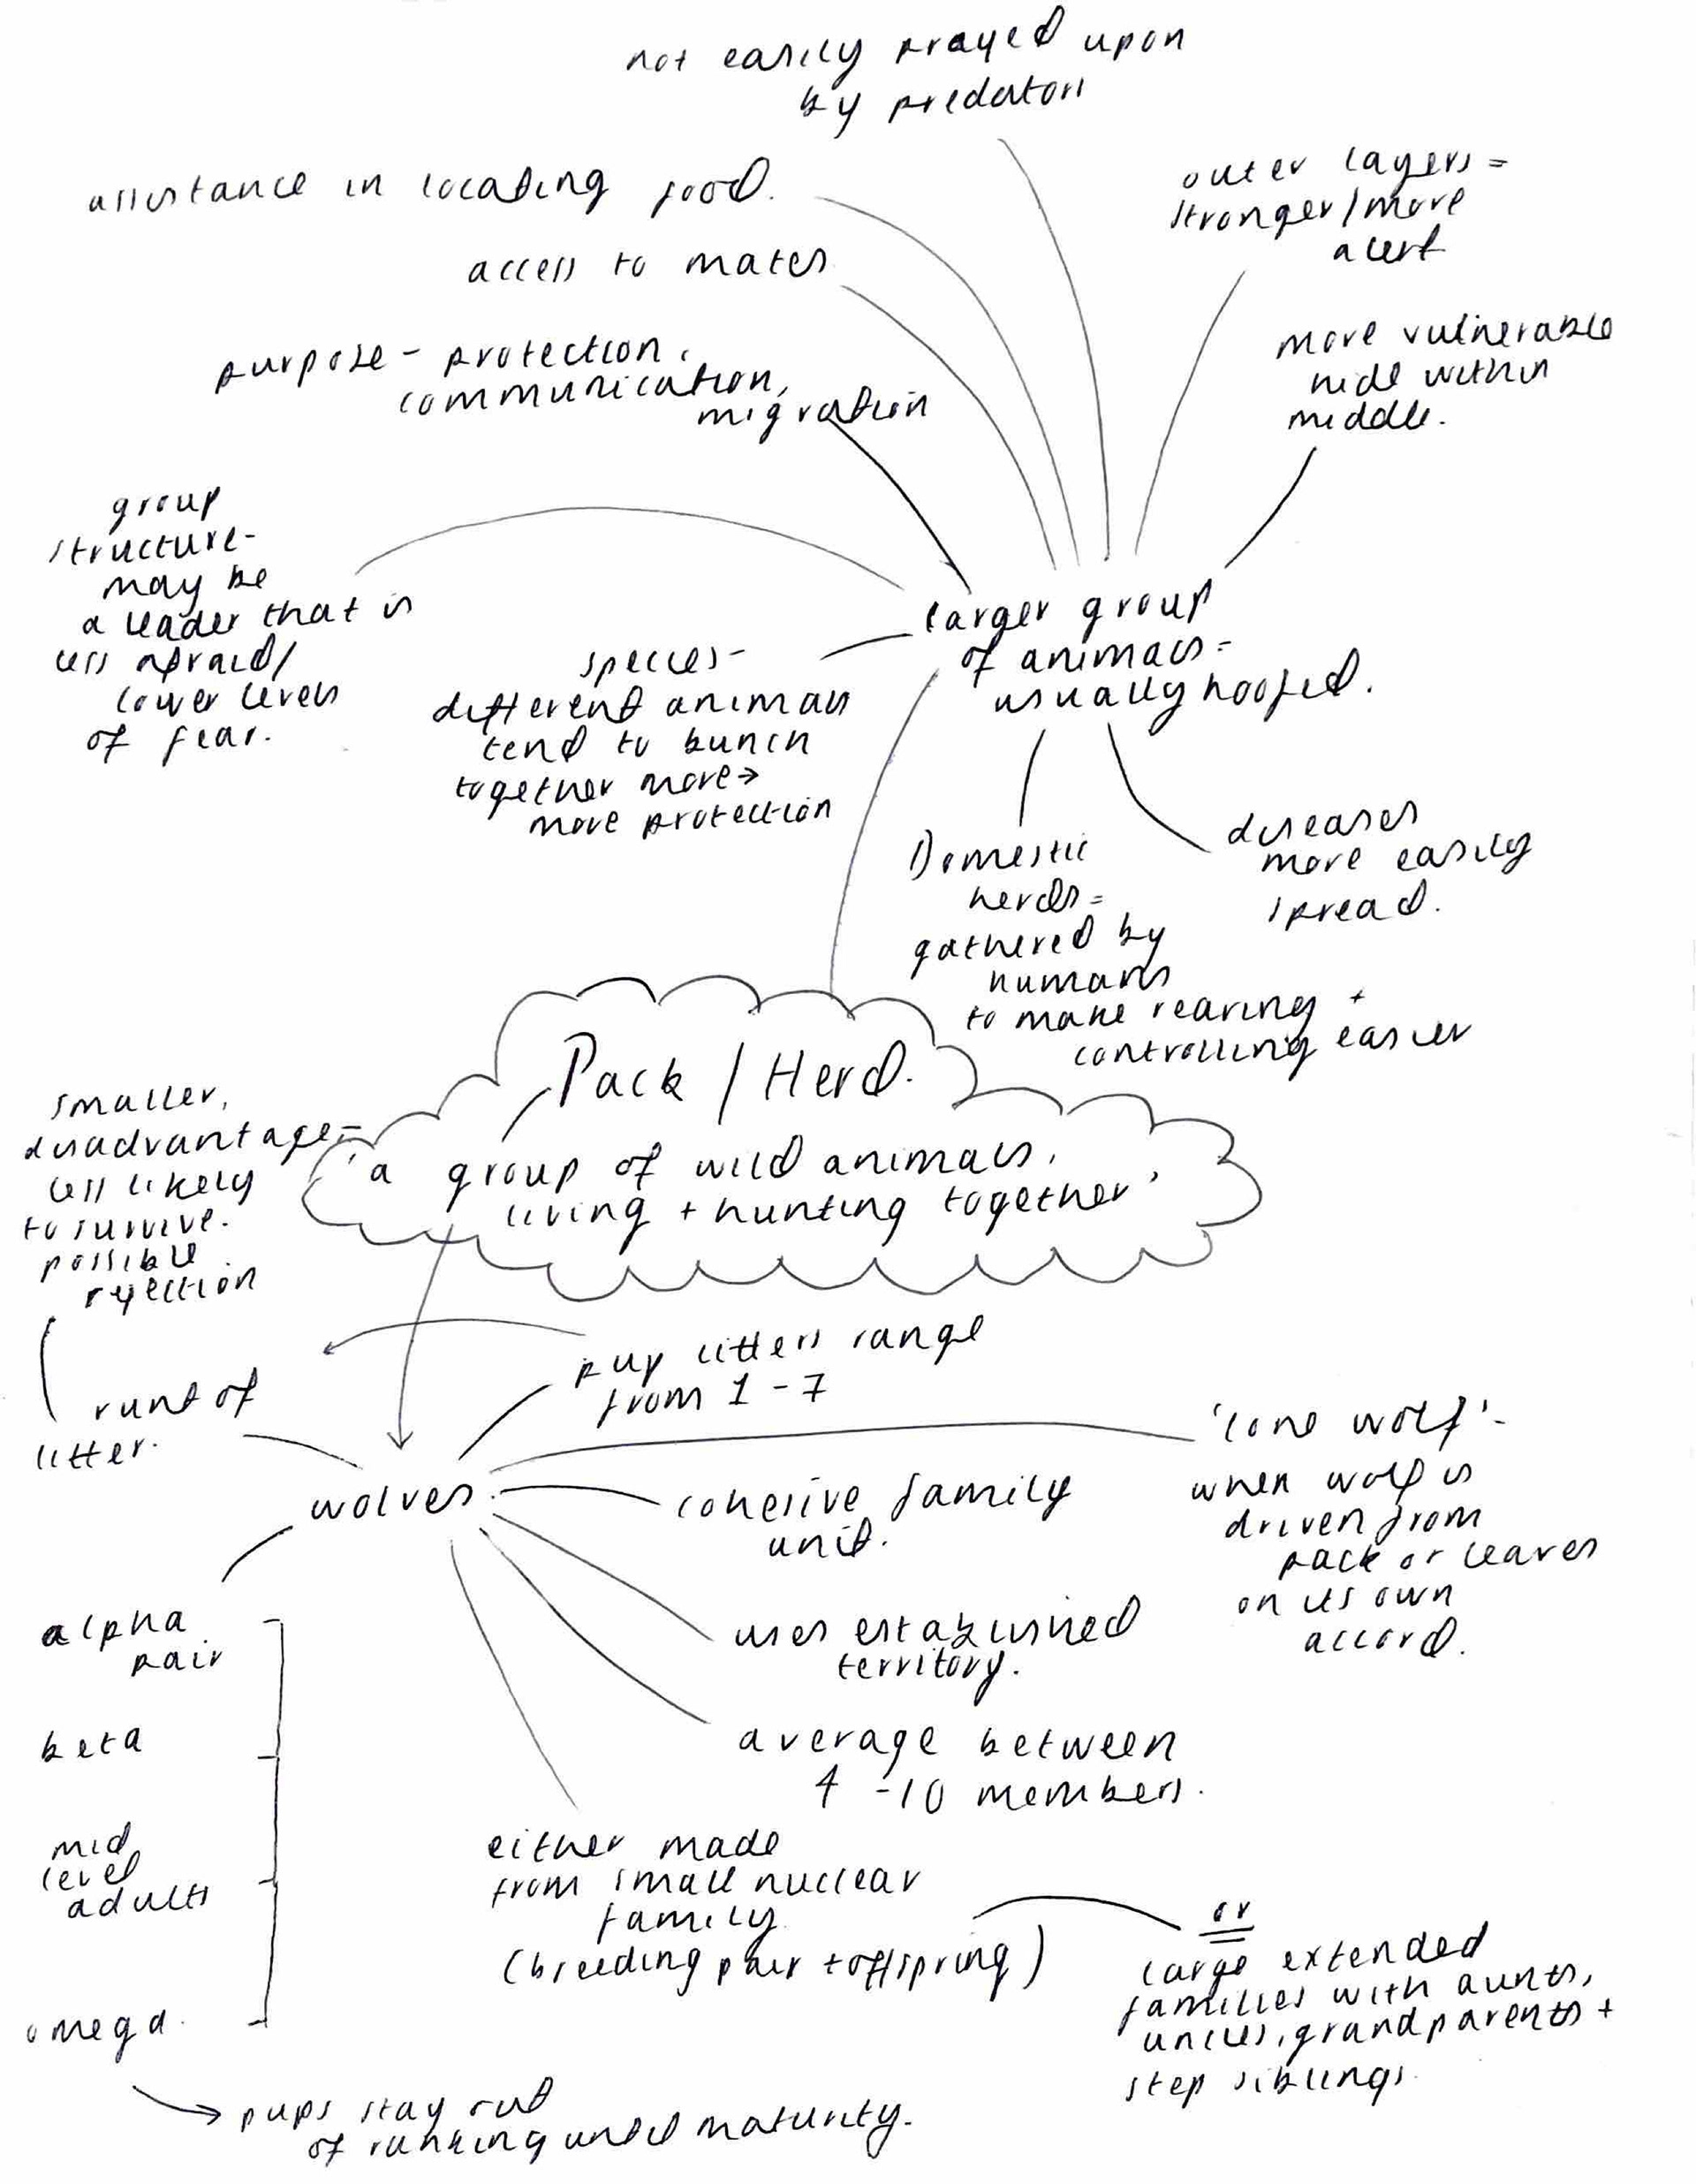 not easily prayed upon
by predators
assistance in locating food.
access to mates
purpose - protection,
communication,
migration
outer layers =
stronger/more
alert
more vulnerable
hide within
middle.
group
structure-
may be
a leader that is
less afraid/
lower levels
of fear.
species-
different animals
tend to bunch
together more→
more protection
larger group
of animals =
usually hoofed.
Domestic
herds =
gathered by
humans
to make rearing +
controlling easier
diseases
more easily
spread.
Pack / Herd.
'a group of wild animals,
living + hunting together'
smaller,
disadvantage-
less likely
to survive.
possible
rejection
runt of
litter.
pup litters range
from 1-7
wolves.
'lone wolf'-
when wolf is
driven from
pack or leaves
on its own
accord.
cohesive family
unit.
uses established
territory.
average between
4 -10 members.
either made
from small nuclear
family
(breeding pair + offspring)
or
large extended
families with aunts,
uncles, grandparents +
step siblings.
alpha
pair
beta
mid
level
adults
omega.
pups stay out
of ranking until maturity.